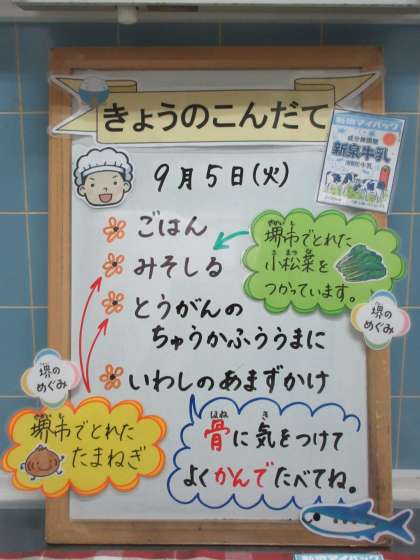 きょうのこんだて
新泉マイパック
成分無調整
新泉牛乳
9月5日(火)
ごはん
みそしる
とうがんの
ちゅうかふううまに
いわしのあまずかけ
堺市でとれた
小松菜を
つかっています。
堺の
めぐみ
堺の
めぐみ
堺市でとれた
たまねぎ
骨に気をつけて
よくかんでたべてね。